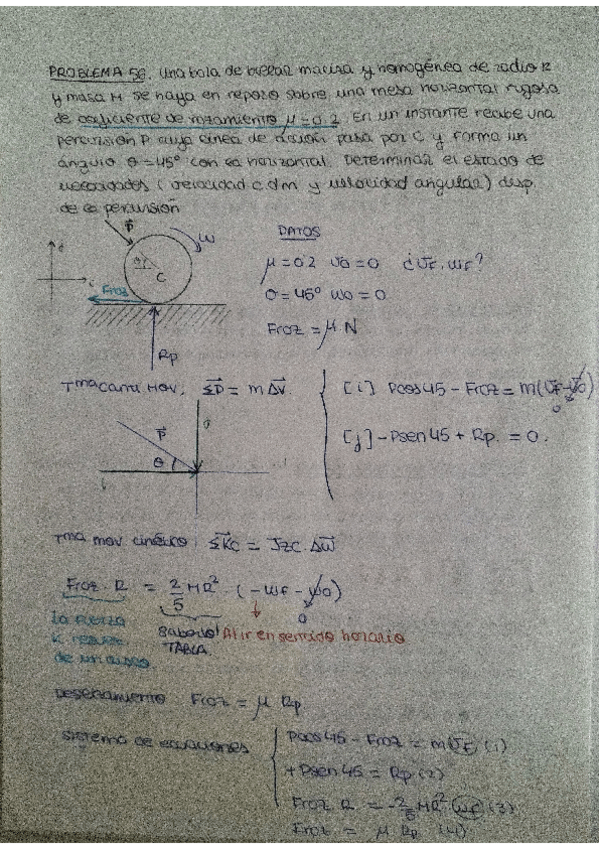 PROBLEMA 56. Una bola de billar maciza y homogénea de radio R
y masa M se haya en reposo sobre una mesa horizontal rugosa
de coeficiente de rozamiento μ=0.2. En un instante recibe una
percusión P cuya línea de acción pasa por C y forma un
ángulo θ=45° con la horizontal. Determinar el estado de
velocidades (velocidad c.d.m y velocidad angular) desp.
de la percusión
P
ω
θ
C
Froz
Rp
DATOS
μ=0.2 v0=0 ¿vF, ωF?
θ=45° ω0=0
Froz = μ·N
Tma cant MOV: ΣP = mΔv
[i] Pcos45 - Froz = m(vF - v0)
0
[j] -Psen45 + Rp = 0.
P
θ
Tma mov cinético: ΣKC = JZC·Δω
Froz·R = 2/5 MR² · (-ωF - ω0)
0
la fuerza
TABLA.
Al ir en sentido horario
Deslizamiento Froz = μ Rp
Sistema de ecuaciones
Pcos45 - Froz = m vF (1)
+Psen45 = Rp (2)
Froz R = -2/5 MR² ωF (3)
Froz = μ Rp (4)